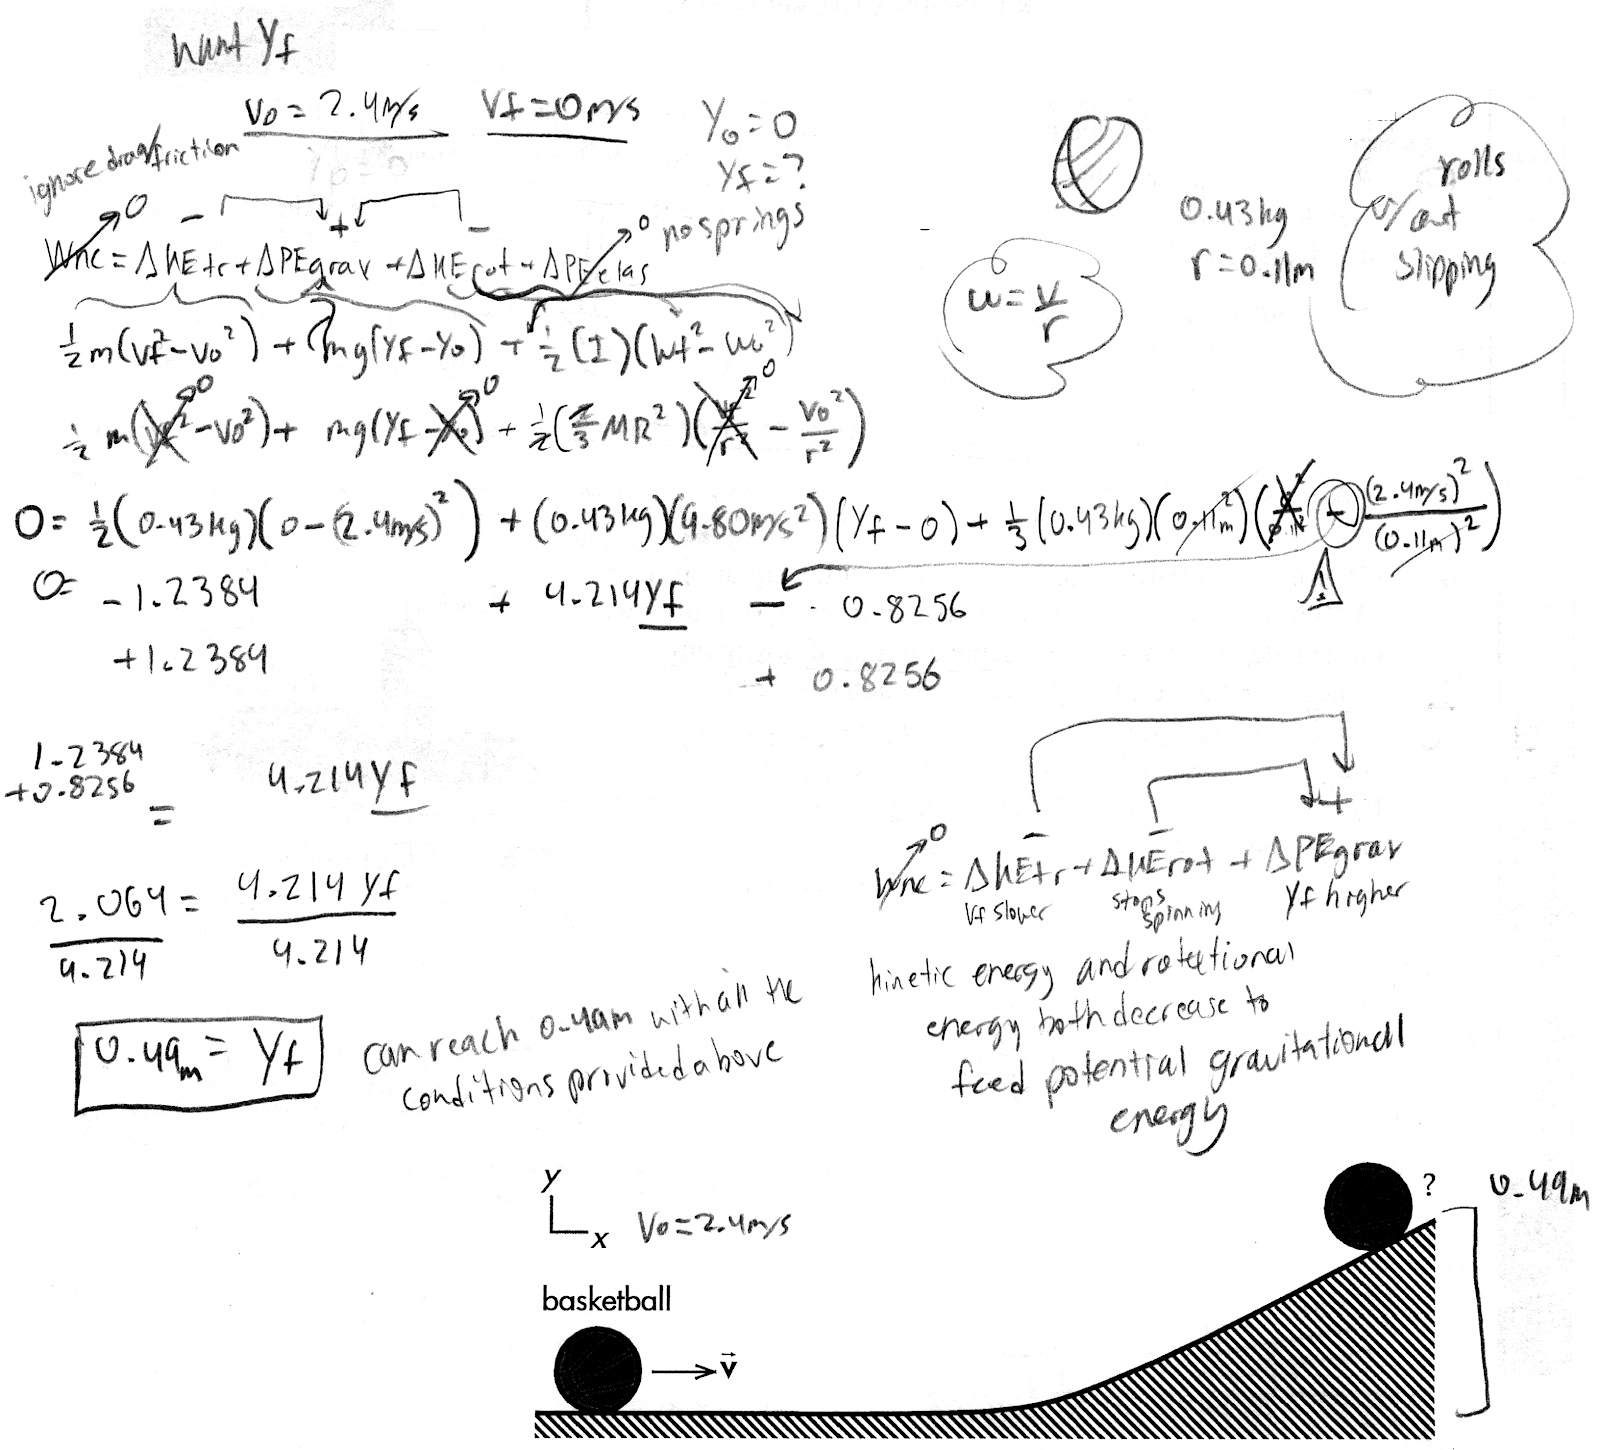 want Yf
V0 = 2.4m/s Vf = 0m/s Y0 = 0
Yf = ?
ignore drag/friction
0 - + - 0 no springs
Wnc = ΔKEtr + ΔPEgrav + ΔKErot + ΔPEelas
½m(Vf²-V0²) + mg(Yf-Y0) + ½(I)(Wf²-W0²)
½m(Vf²-V0²) + mg(Yf-Y0) + ½(⅔MR²)(Vf²/r² - V0²/r²)
0 0 0
0.43kg
r = 0.11m
rolls
w/out
slipping
ω = V/r
0 = ½(0.43kg)(0-(2.4m/s)²) + (0.43kg)(9.80m/s²)(Yf-0) + ⅓(0.43kg)(0.11m²)( - (2.4m/s)²/(0.11m)²)
0 = -1.2384 + 4.214Yf - 0.8256
+1.2384 + 0.8256
1.2384
+0.8256 = 4.214Yf
2.064/4.214 = 4.214Yf/4.214
0.49m = Yf
can reach 0.49m with all the
conditions provided above
0 - - +
Wnc = ΔKEtr + ΔKErot + ΔPEgrav
Vf slower stops spinning Yf higher
kinetic energy and rotational
energy both decrease to
feed potential gravitational
energy
y
x V0 = 2.4m/s
? 0.49m
basketball
v